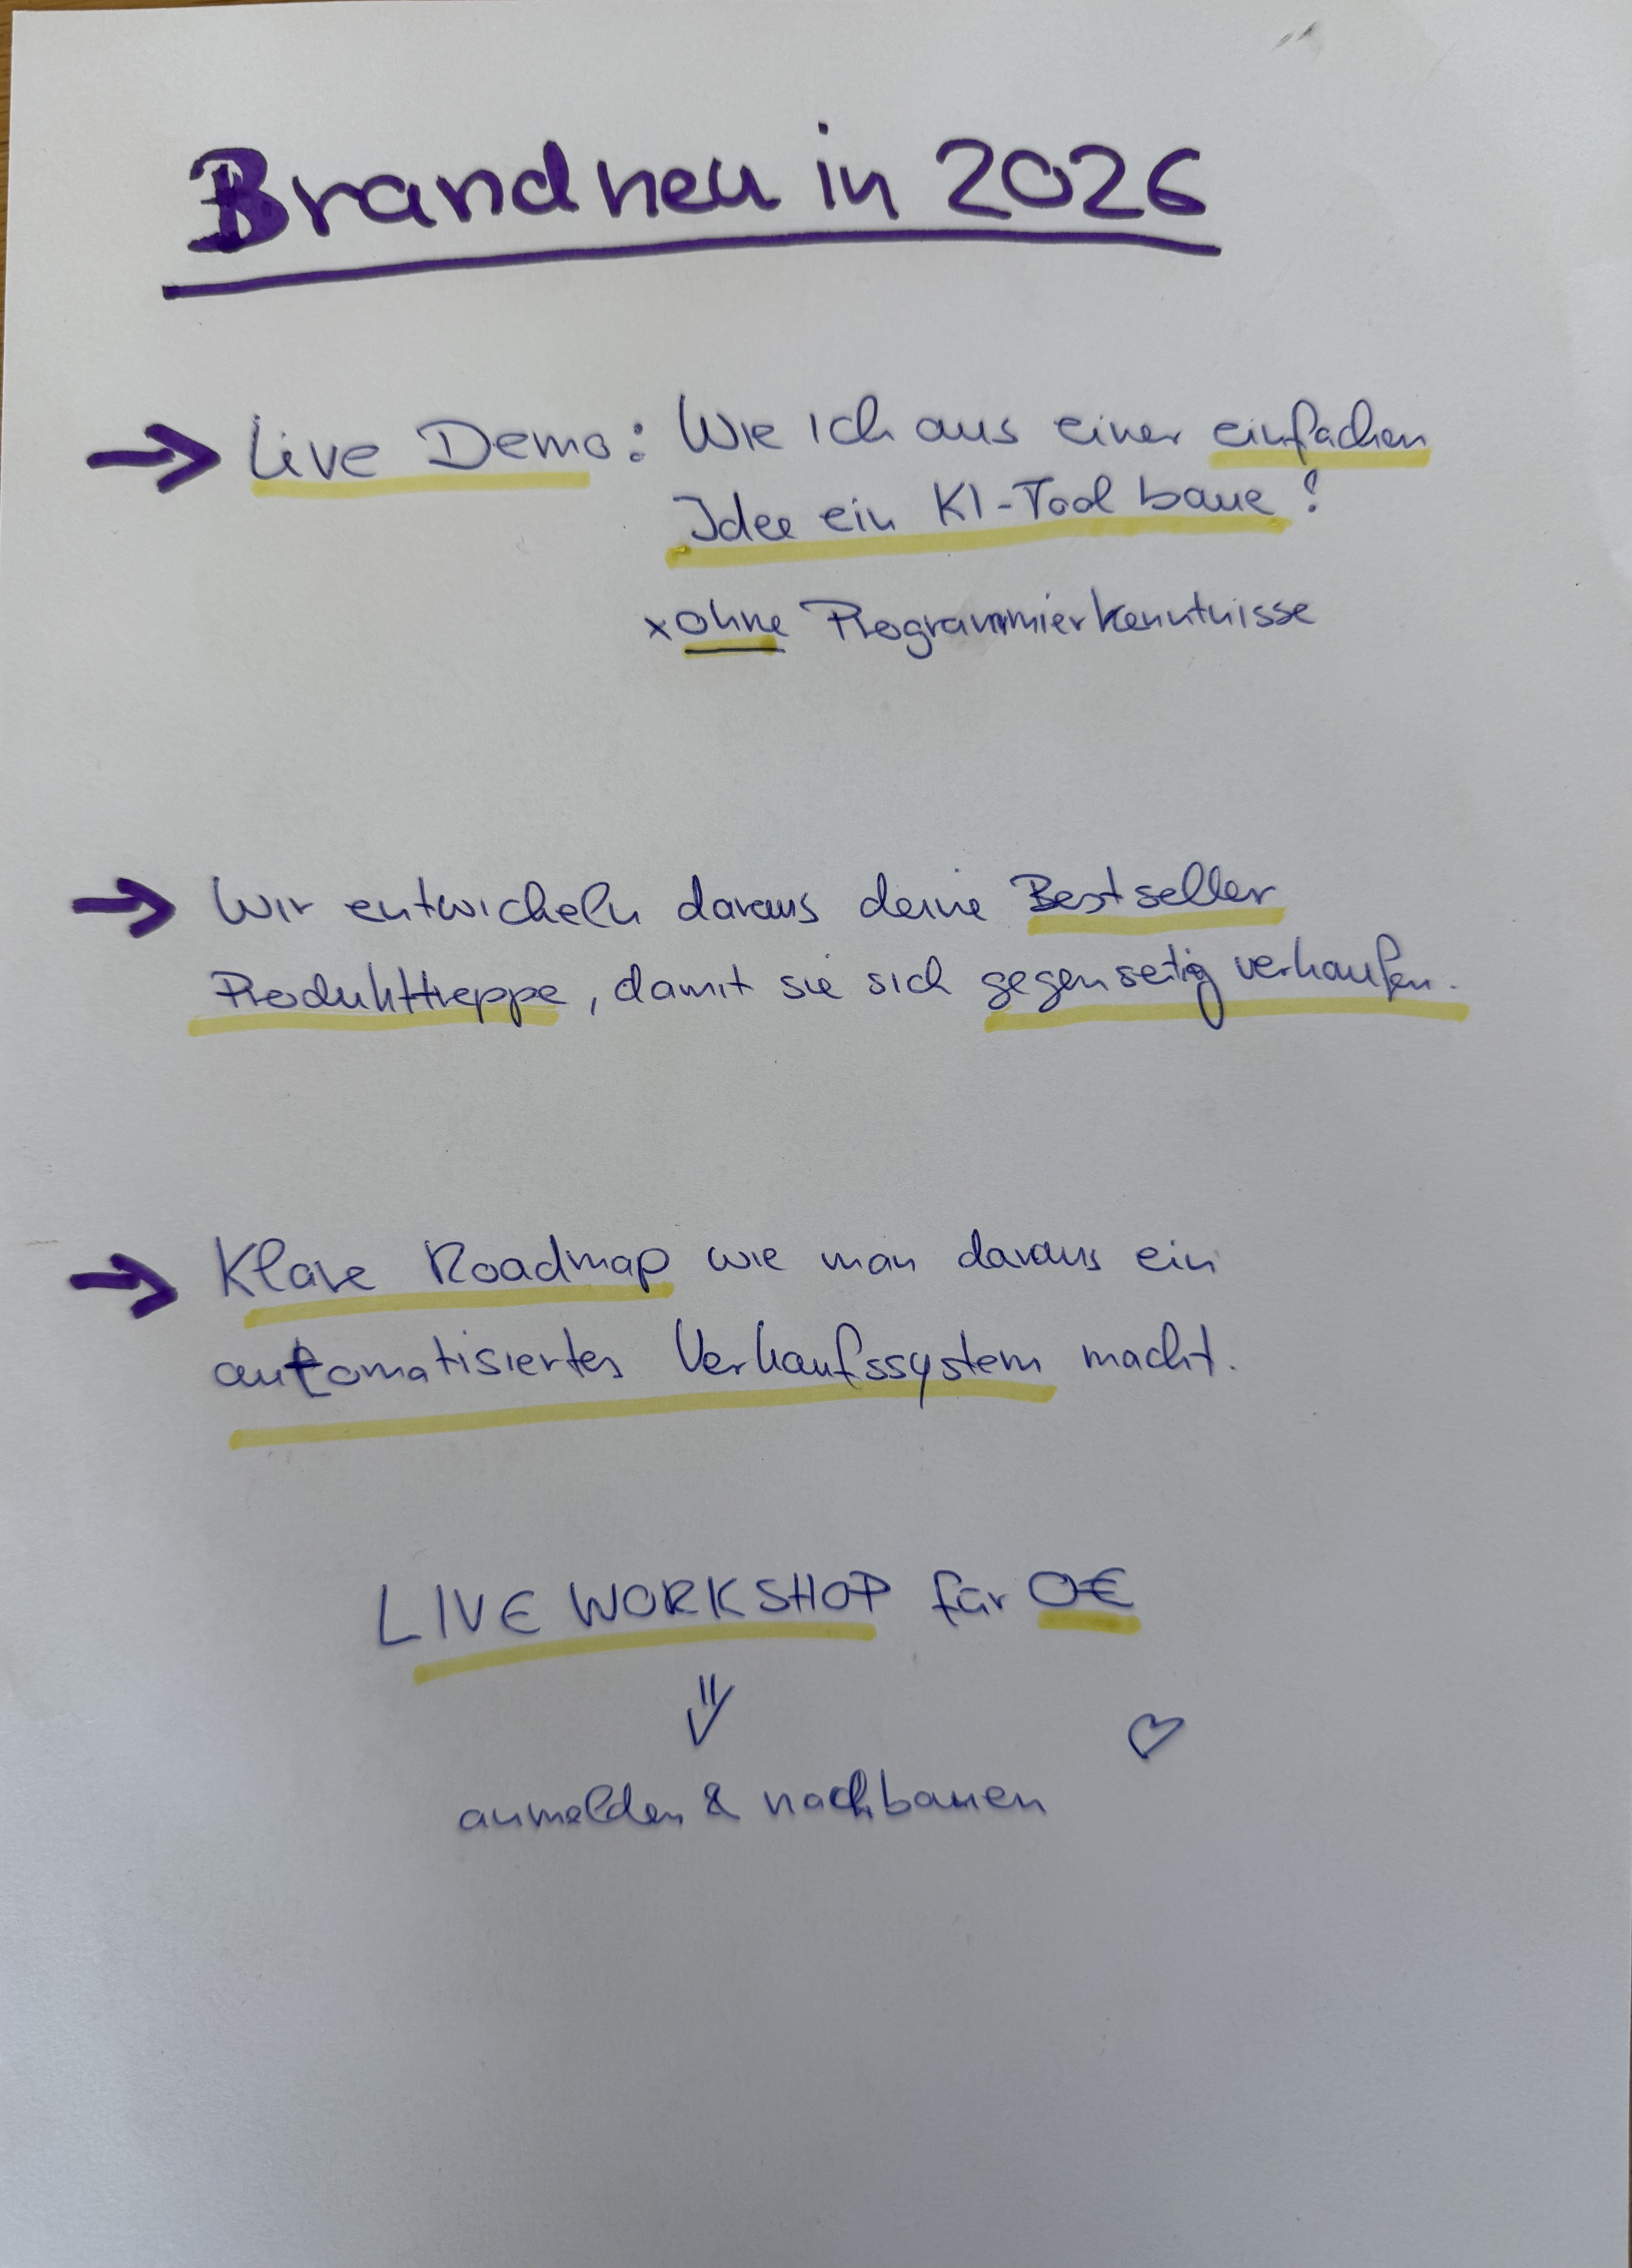 Brandneu in 2026
→ Live Demo: Wie ich aus einer einfachen
Idee ein KI-Tool baue!
x ohne Programmierkenntnisse
→ Wir entwickeln daraus deine Bestseller
Produkttreppe, damit sie sich gegenseitig verkaufen.
→ Klare Roadmap wie man daraus ein
automatisiertes Verkaufssystem macht.
LIVE WORKSHOP für 0€
anmelden & nachbauen